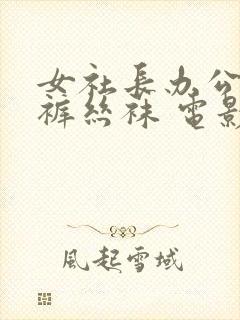 女社長办公
裤丝袜 電影
風起雪域